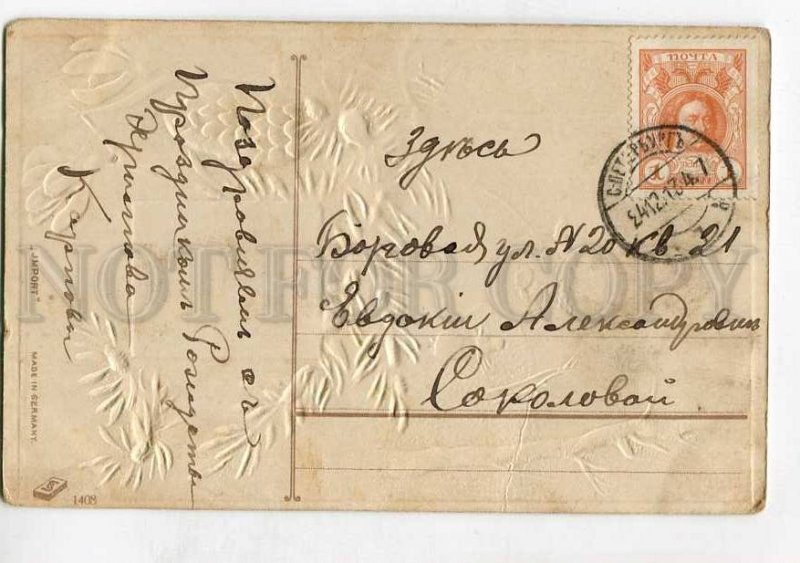 Поздравляем съ
Праздником Рождества
Христова
Карповы
"IMPORT"
MADE IN GERMANY.
1408
ПОЧТА
1
С.ПЕТЕРБУРГЪ
24.12.13.4.1
Здѣсь
Боровая ул. N 20 кв. 21
Евдокіи Александровнѣ
Соколовой
NOT FOR COPY